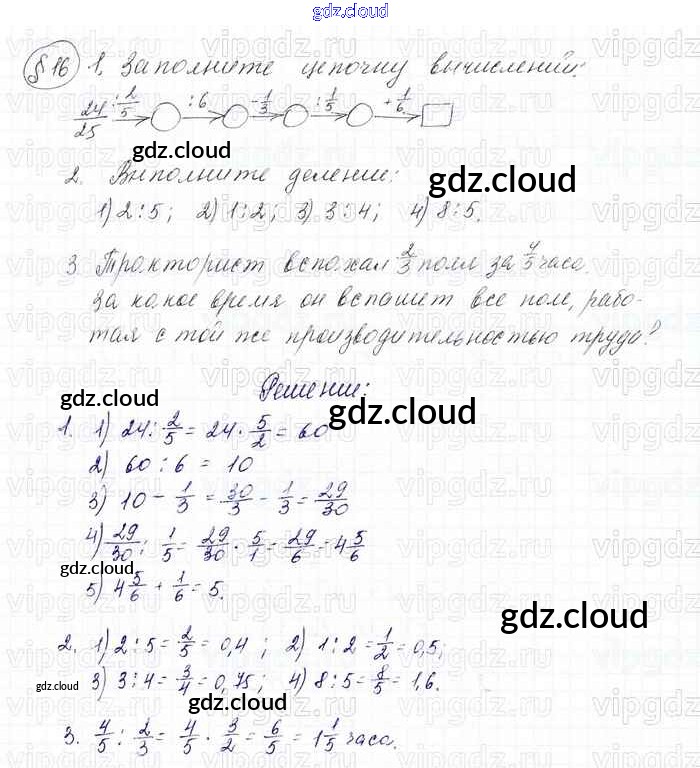 gdz.cloud
§ 16 1. Заполните цепочку вычислений:
24/25 : 2/5 → ○ : 6 → ○ - 1/3 → ○ : 1/5 → ○ + 1/6 → □
gdz.cloud
2. Выполните деление:
gdz.cloud
1) 2 : 5; 2) 1 : 2; 3) 3 : 4; 4) 8 : 5.
3. Тракторист вспахал 2/3 поля за 4/5 часа.
За какое время он вспашет все поле, рабо-
тая с той же производительностью труда?
Решение:
gdz.cloud gdz.cloud
1. 1) 24 : 2/5 = 24 · 5/2 = 60
2) 60 : 6 = 10
3) 10 - 1/3 = 30/3 - 1/3 = 29/30
4) 29/30 : 1/5 = 29/30 · 5/1 = 29/6 = 4 5/6
gdz.cloud
5) 4 5/6 + 1/6 = 5.
gdz.cloud
2. 1) 2 : 5 = 2/5 = 0,4; 2) 1 : 2 = 1/2 = 0,5;
gdz.cloud
3) 3 : 4 = 3/4 = 0,75; 4) 8 : 5 = 8/5 = 1,6.
gdz.cloud
3. 4/5 : 2/3 = 4/5 · 3/2 = 6/5 = 1 1/5 часа.